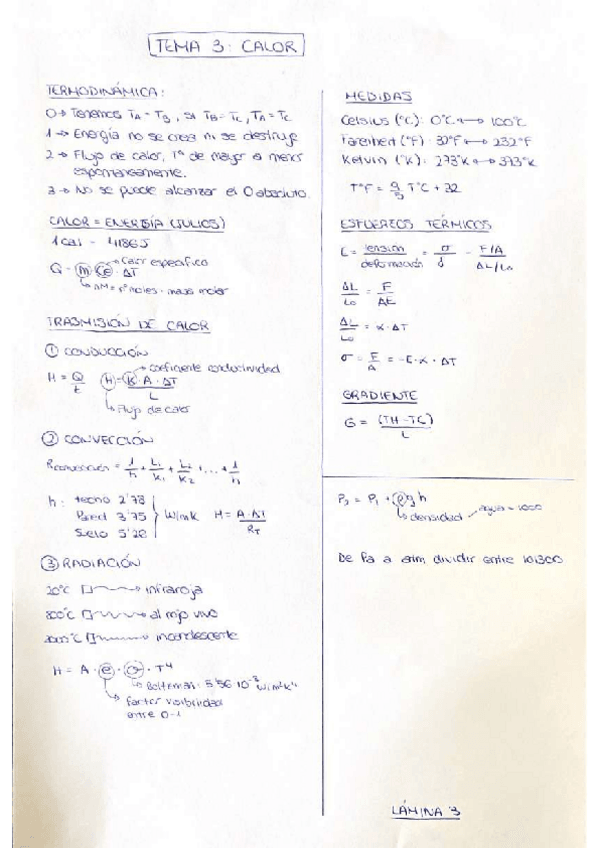 TEMA 3: CALOR
TERMODINÁMICA:
0 → Tenemos TA = TB, si TB = TC, TA = TC
1 → Energía no se crea ni se destruye
2 → Flujo de calor, Tª de mayor a menor
espontaneamente.
3 → No se puede alcanzar el 0 absoluto.
CALOR = ENERGÍA (JULIOS)
1 cal - 4186J
Q = m · ce · ΔT
calor específico
nM = nº moles · masa molar
TRASMISIÓN DE CALOR
① CONDUCCIÓN
coeficiente conductividad
H = Q/t H = K A · ΔT / L
Flujo de calor
② CONVECCIÓN
= 1/h + L1/K1 + L2/K2 + ... + 1/h
h: techo 2'78
Pared 3'75 W/mK H = A · ΔT / RT
Suelo 5'28
③ RADIACIÓN
20°C infraroja
800°C al rojo vivo
incandescente
H = A · e · σ · T⁴
factor
entre 0-1
MEDIDAS
Celsius (°C): 0°C ↔ 100°C
Farenheit (°F): 32°F ↔ 232°F
Kelvin (°K): 273°K ↔ 373°K
T°F = 9/5 T°C + 32
ESFUERZOS TÉRMICOS
E = tensión/deformación = σ/δ = F/A / ΔL/Lo
ΔL/Lo = F/AE
ΔL/Lo = α · ΔT
σ = F/A = -E · α · ΔT
GRADIENTE
G = (TH - TC)/L
P2 = P1 + ρgh
densidad agua = 1000
De Pa a atm dividir entre 101300
LÁMINA 3